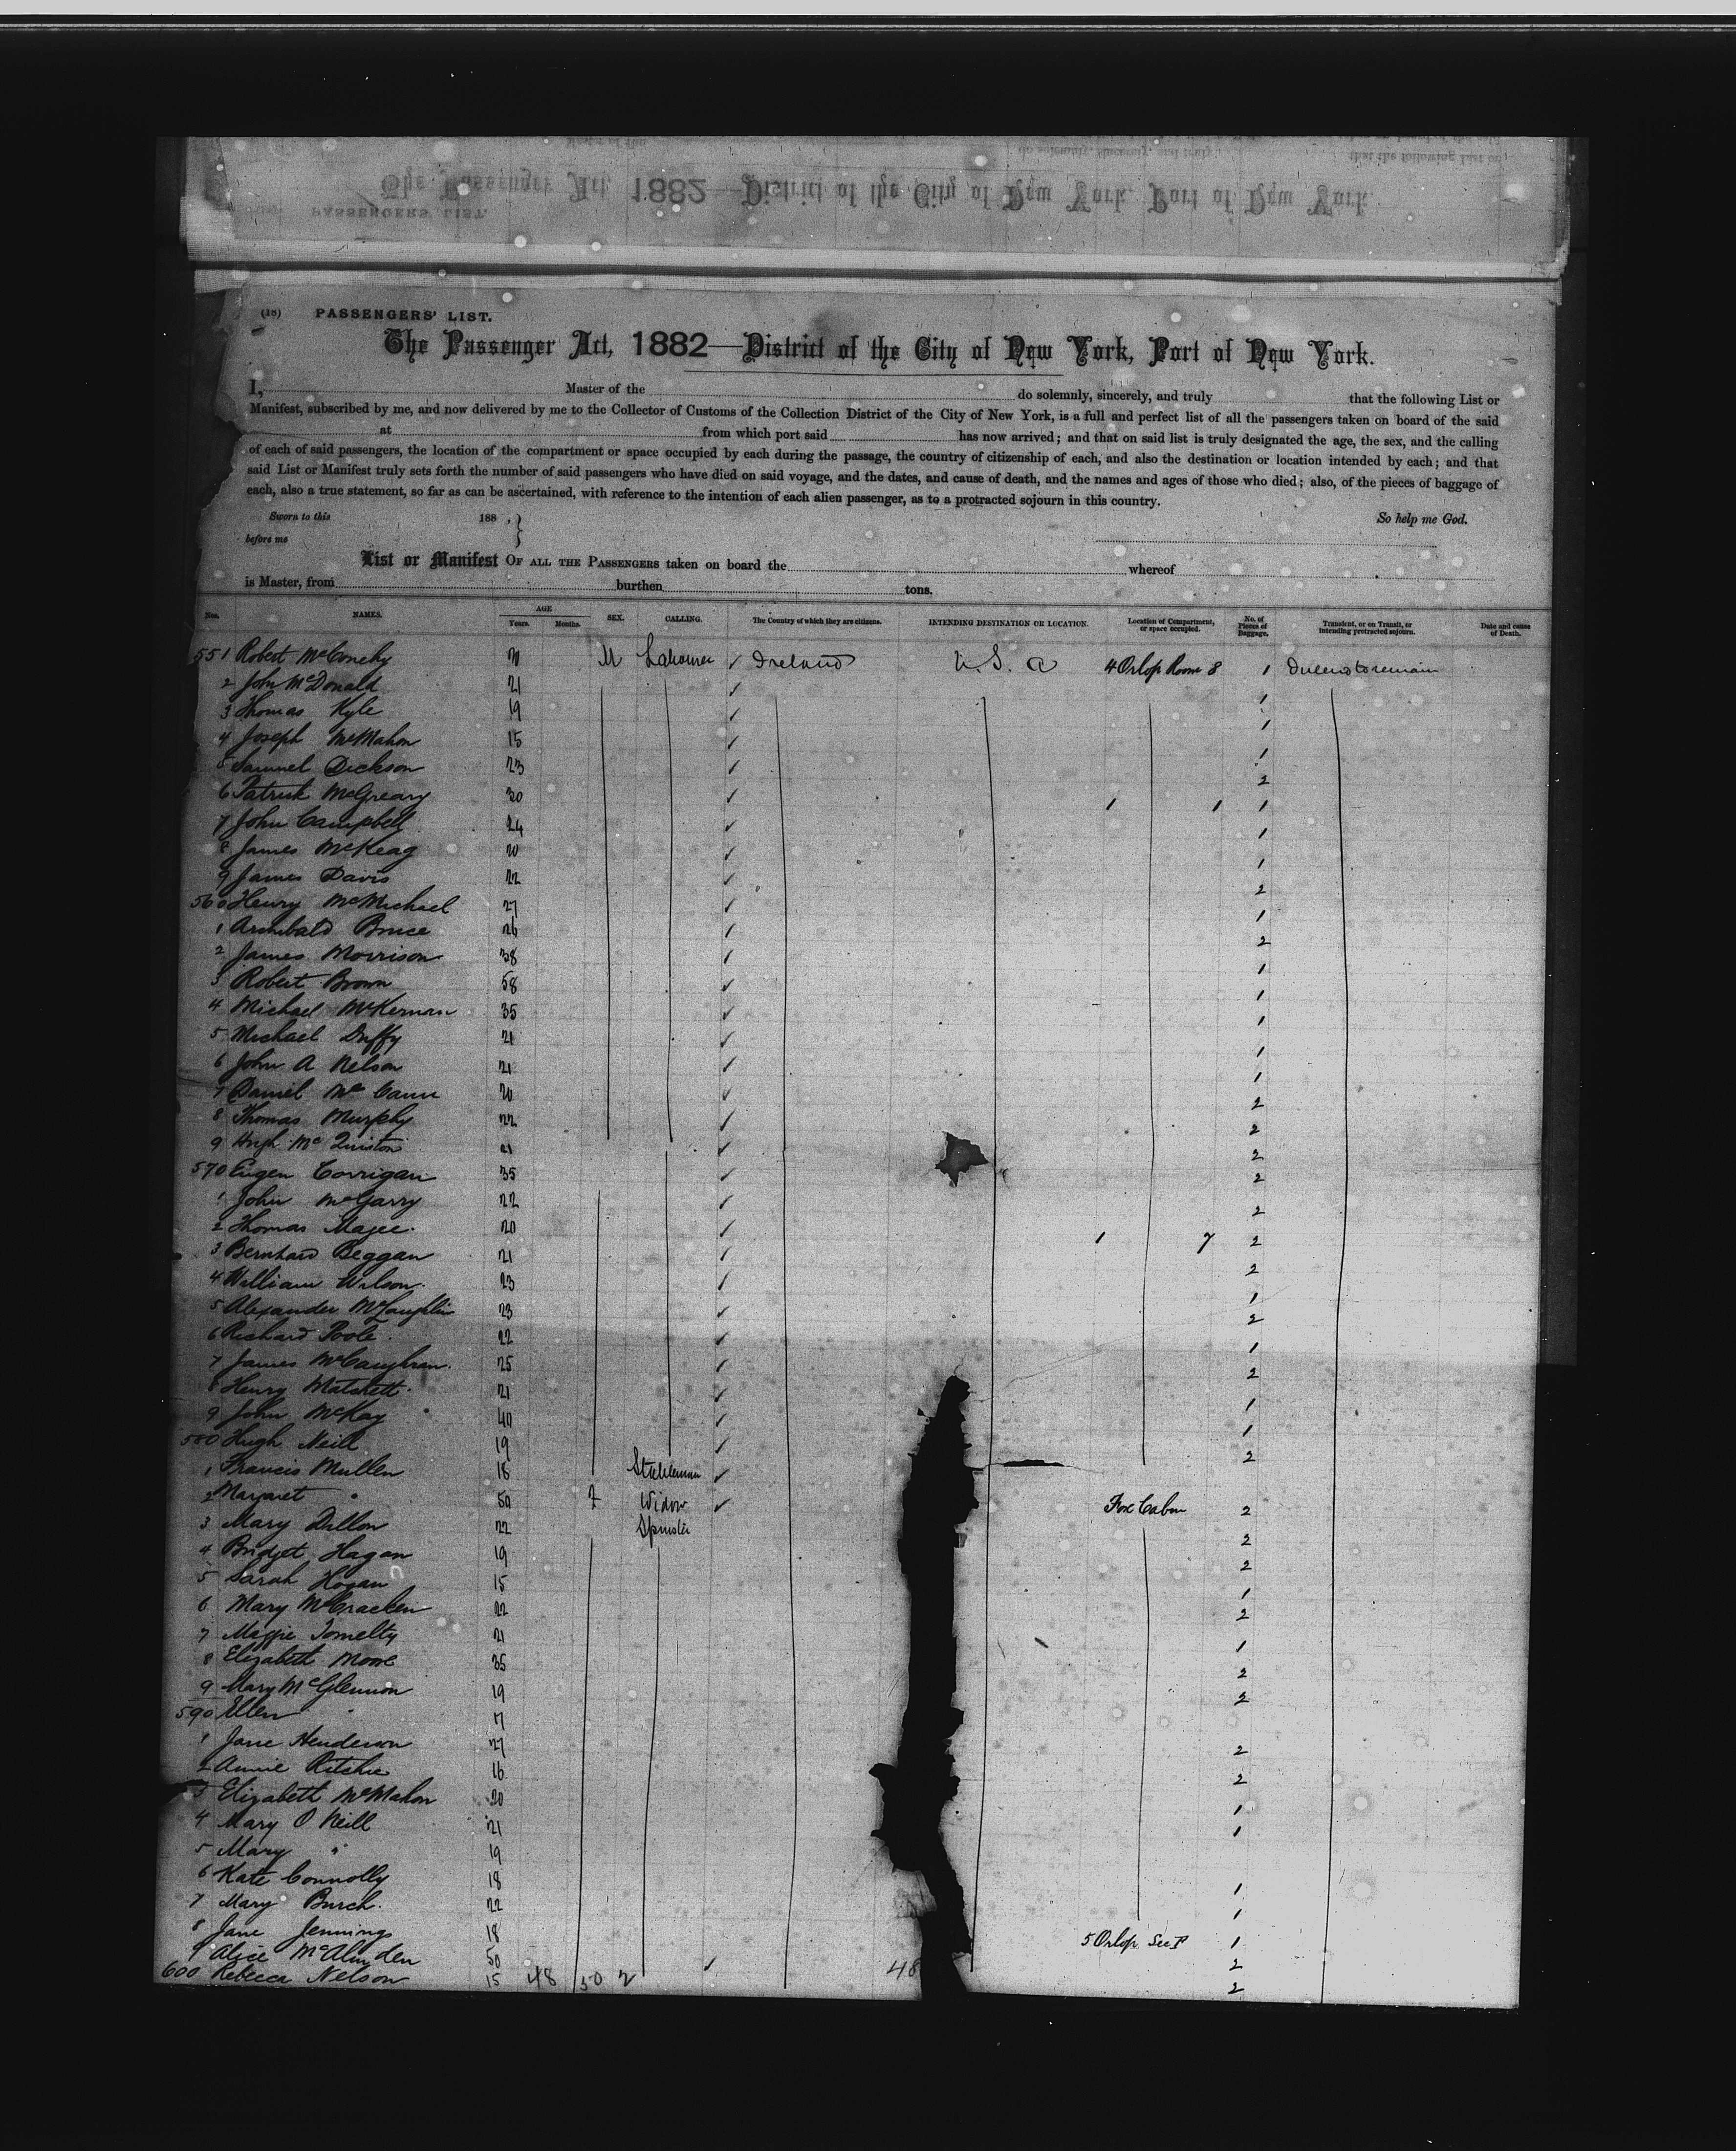 (18) PASSENGERS' LIST.
The Passenger Act, 1882—District of the City of New York, Port of New York.
I, Master of the do solemnly, sincerely, and truly that the following List or
Manifest, subscribed by me, and now delivered by me to the Collector of Customs of the Collection District of the City of New York, is a full and perfect list of all the passengers taken on board of the said
at from which port said has now arrived; and that on said list is truly designated the age, the sex, and the calling
of each of said passengers, the location of the compartment or space occupied by each during the passage, the country of citizenship of each, and also the destination or location intended by each; and that
said List or Manifest truly sets forth the number of said passengers who have died on said voyage, and the dates, and cause of death, and the names and ages of those who died; also, of the pieces of baggage of
each, also a true statement, so far as can be ascertained, with reference to the intention of each alien passenger, as to a protracted sojourn in this country.
Sworn to this 188 , } So help me God.
before me
List or Manifest OF ALL THE PASSENGERS taken on board the whereof
is Master, from burthen tons.
Nos. NAMES. AGE Years. Months. SEX. CALLING. The Country of which they are citizens. INTENDING DESTINATION OR LOCATION. Location of Compartment, or space occupied. No. of Pieces of Baggage. Transient, or on Transit, or intending protracted sojourn. Date and cause of Death.
551 Robert McConchy M Labourer ✓ Ireland U. S. A 4 Orlop Room 8 1 Intend to remain
2 John McDonald 21 ✓ 1
3 Thomas Kyle 19 ✓ 1
4 Joseph McMahon 15 ✓ 1
5 Samuel Dickson 23 ✓ 2
6 Patrick McGreary 30 ✓ 1 1 1
7 John Campbell 24 ✓ 1
8 James McKeag 20 ✓ 1
9 James Davis 22 ✓ 2
560 Henry McMichael 27 ✓ 1
1 Archibald Bruce 26 ✓ 2
2 James Morrison 38 ✓ 1
3 Robert Brown 58 ✓ 1
4 Michael McKernan 35 ✓ 1
5 Michael Duffy 21 ✓ 1
6 John A Nelson 21 ✓ 1
7 Daniel Mc Cann 20 ✓ 2
8 Thomas Murphy 22 ✓ 2
9 Hugh Mc Quiston 21 ✓ 2
570 Eugen Corrigan 35 ✓ 2
1 John McGarry 22 ✓ 2
2 Thomas Magee 20 ✓ 1 7 2
3 Bernhard Beggan 21 ✓ 2
4 William Wilson 23 ✓ 1
5 Alexander McLaughlin 23 ✓ 2
6 Richard Poole 22 ✓ 1
7 James McCaughran 25 ✓ 2
8 Henry Matchett 21 ✓ 1
9 John McKay 40 ✓ 1
580 Hugh Neill 19 ✓ 2
1 Francis Mullen 18 Stableman ✓
2 Margaret " 50 F Widow ✓ Fore Cabin 2
3 Mary Dillon 22 Spinster 2
4 Bridget Hagan 19 2
5 Sarah Hogan 15 1
6 Mary McCracken 22 2
7 Maggie Tomelty 21 1
8 Elizabeth Moore 35 2
9 Mary McGlennon 19 2
590 Ellen "
1 Jane Henderson 27 2
2 Annie Ritchie 16 2
3 Elizabeth McMahon 20 1
4 Mary O Neill 21 1
5 Mary " 19
6 Kate Connolly 18 1
7 Mary Burch 22 1
8 Jane Jennings 18 5 Orlop Sec F 1
9 Alice McAlinden 50 ✓ 2
600 Rebecca Nelson 15 48 50 2 48 2